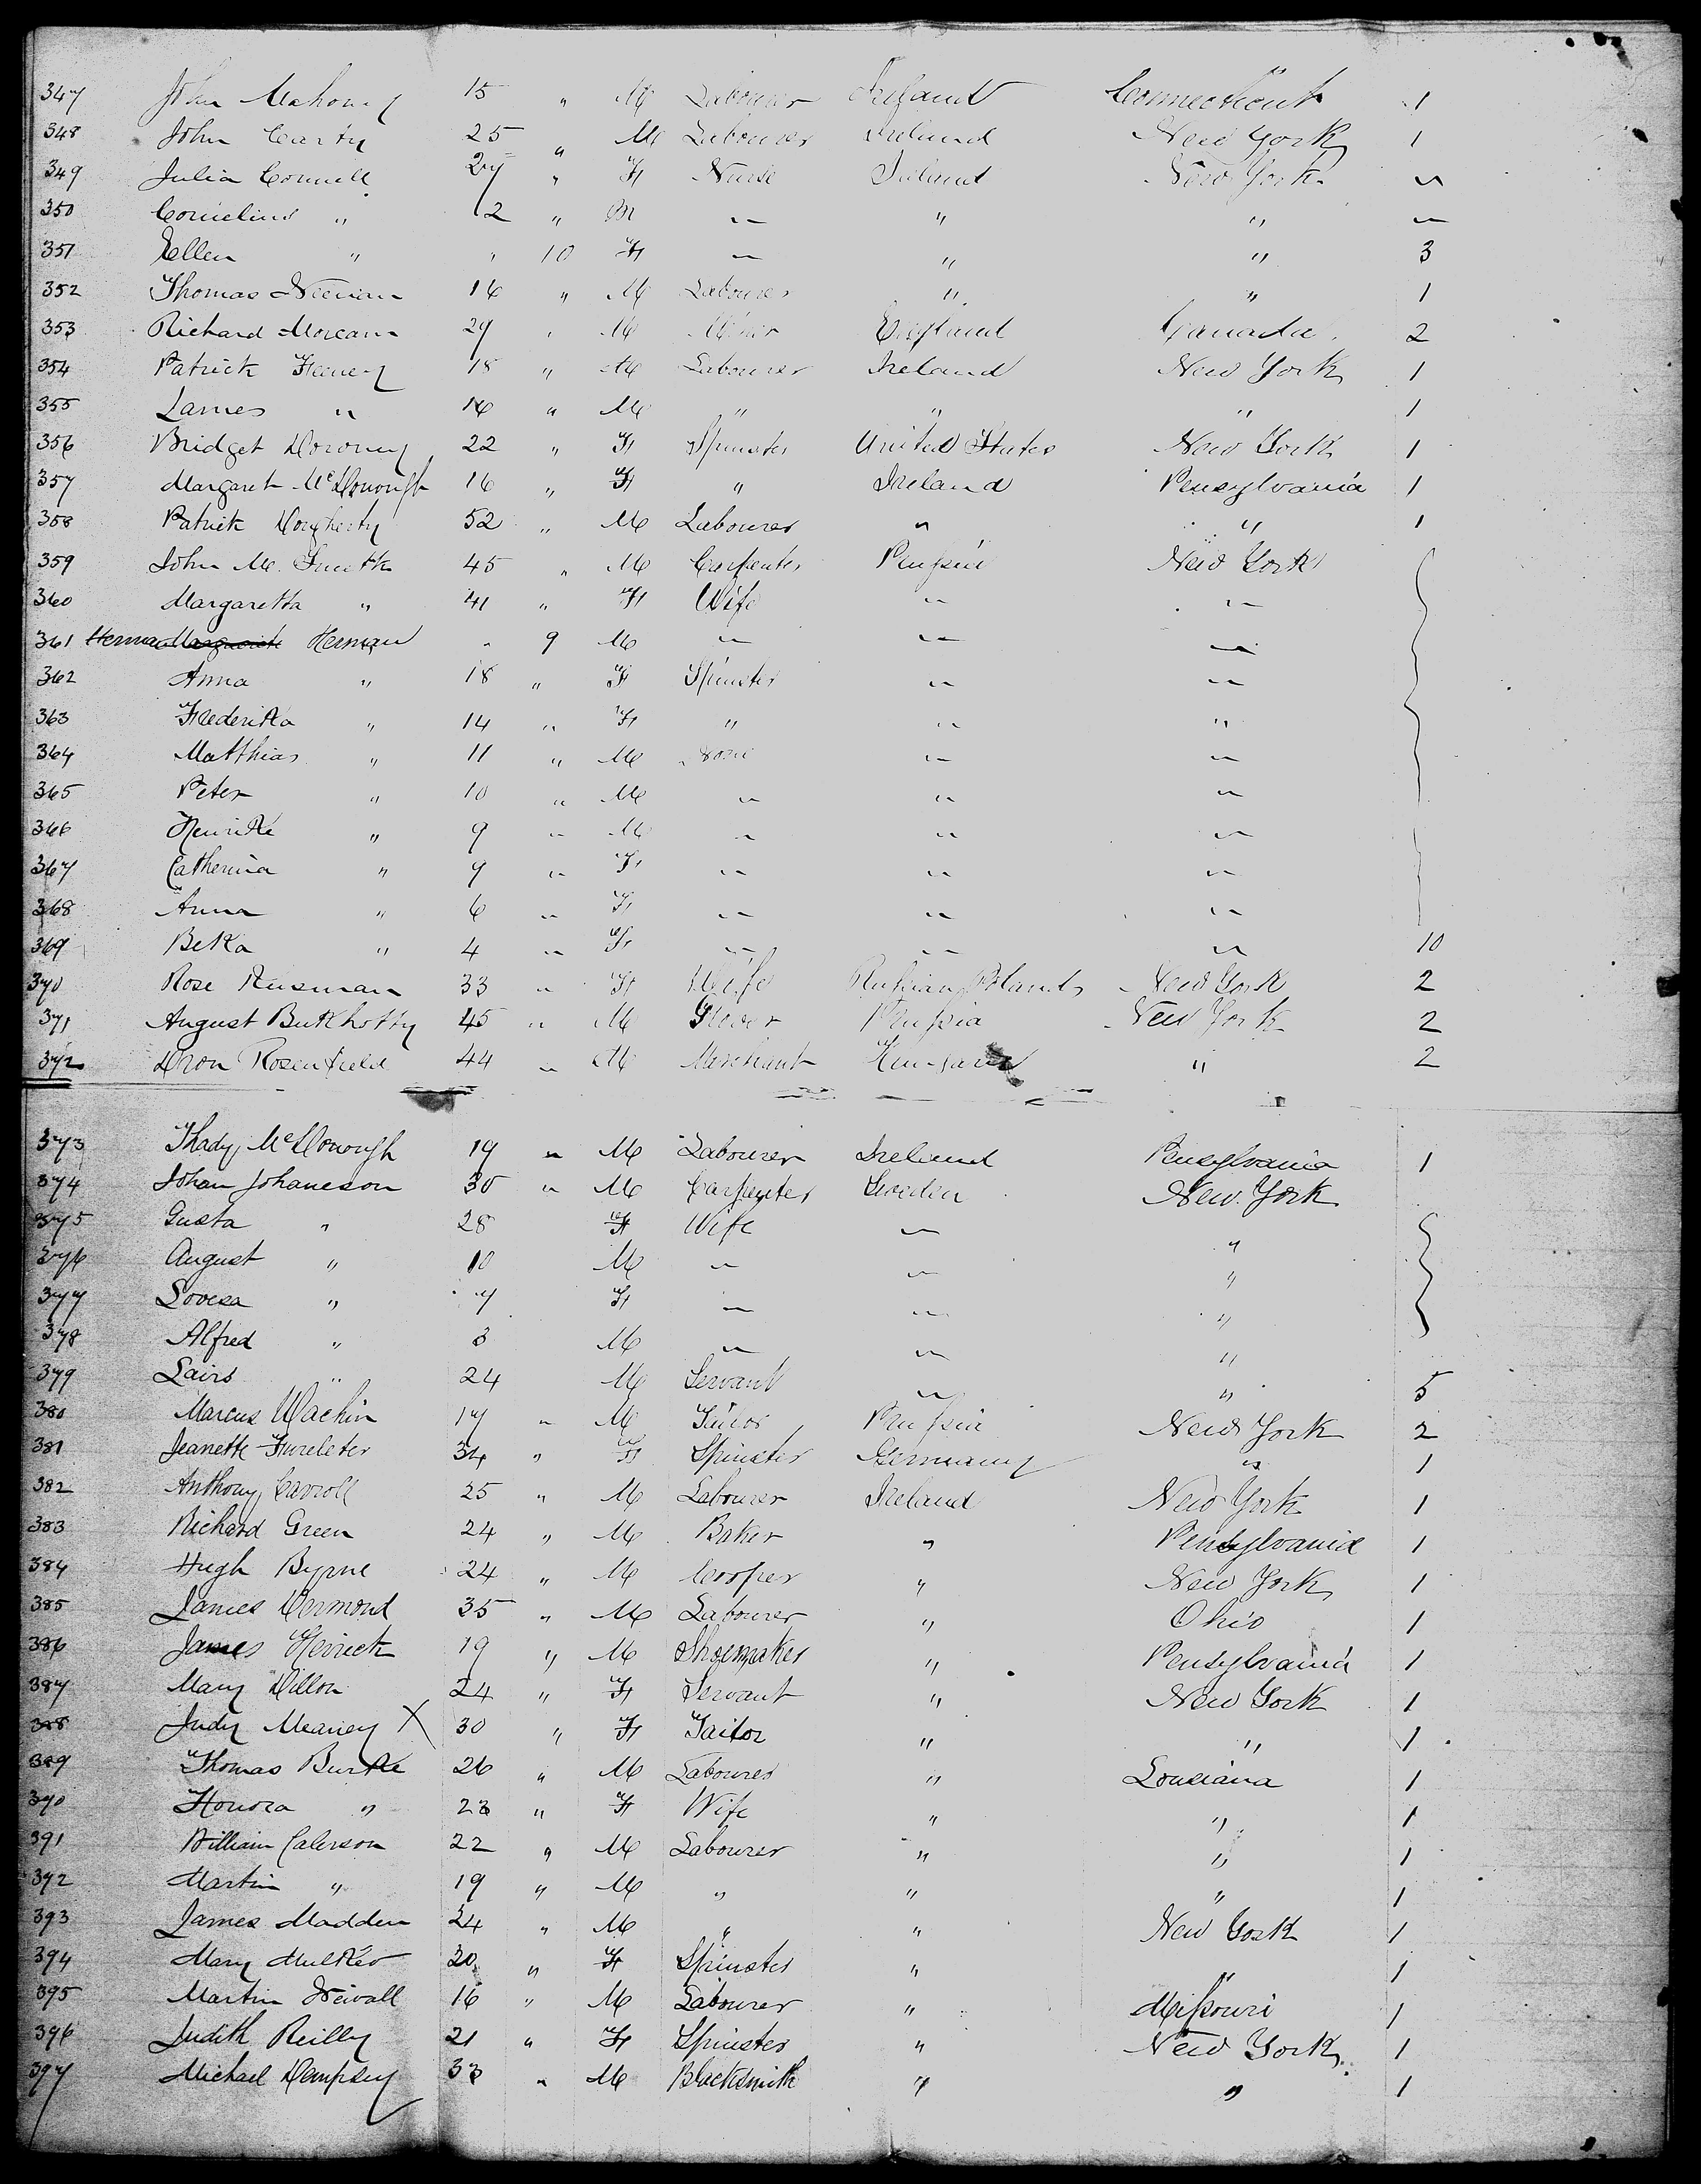 347 John Mahoney 15 " M Labourer Ireland Connecticut 1
348 John Carty 25 " M Labourer Ireland New York 1
349 Julia Connell 27 " F Nurse Ireland New York "
350 Cornelius " 2 " M " " " "
351 Ellen " " 10 F " " " 3
352 Thomas 16 " M Labourer " " 1
353 Richard 29 " M Miner England Canada 2
354 Patrick Feeney 18 " M Labourer Ireland New York 1
355 James " 16 " M " " " 1
356 Bridget Doroney 22 " F Spinster United States New York 1
357 Margaret McDonough 16 " F " Ireland Pensylvania 1
358 Patrick Dougherty 52 " M Labourer " " 1
359 John M. 45 " M Carpenter Prussia New York
360 Margaretta " 41 " F Wife " "
361 Herman Herman " 9 M " " "
362 Anna " 18 " F Spinster " "
363 Frederika " 14 " F " " "
364 Matthias " 11 " M None " "
365 Peter " 10 " M " " "
366 Henrike " 9 " M " " "
367 Catherina " 9 " F " " "
368 Anna " 6 " F " " "
369 Beka " 4 " F " " " 10
370 Rose 33 " F Wife Russian Poland New York 2
371 August 45 " M Prussia New York 2
372 Rosenfield 44 " M Merchant " 2
373 Thady McDonough 19 " M Labourer Ireland Pensylvania 1
374 Johan Johaneson 30 " M Carpenter Sweden New York
375 Gusta " 28 F Wife " "
376 August " 10 M " " "
377 Lovesa " 7 F " " "
378 Alfred " 3 M " " "
379 Lairs " 24 M Servant " " 5
380 Marcus Wachin 17 " M Prussia New York 2
381 Jeanette 34 " F Spinster Germany " 1
382 Anthony Carroll 25 " M Labourer Ireland New York 1
383 Richard Green 24 " M Baker " Pensylvania 1
384 Hugh Byrne 24 " M Cooper " New York 1
385 James Dermond 35 " M Labourer " Ohio 1
386 James Herrick 19 " M Shoemaker " Pensylvania 1
387 Mary Dillon 24 " F Servant " New York 1
388 Judy Meaney X 30 " F Tailor " " 1
389 Thomas Burke 26 " M Labourer " Lousiana 1
390 Honora " 23 " F Wife " " 1
391 William Calerson 22 " M Labourer " " 1
392 Martin " 19 " M " " " 1
393 James Madden 24 " M " " New York 1
394 Mary Mulkeo 20 " F Spinster " " 1
395 Martin 16 " M Labourer " Missouri 1
396 Judith Reilly 21 " F Spinster " New York 1
397 Michael Dempsey 33 " M Blacksmith " " 1